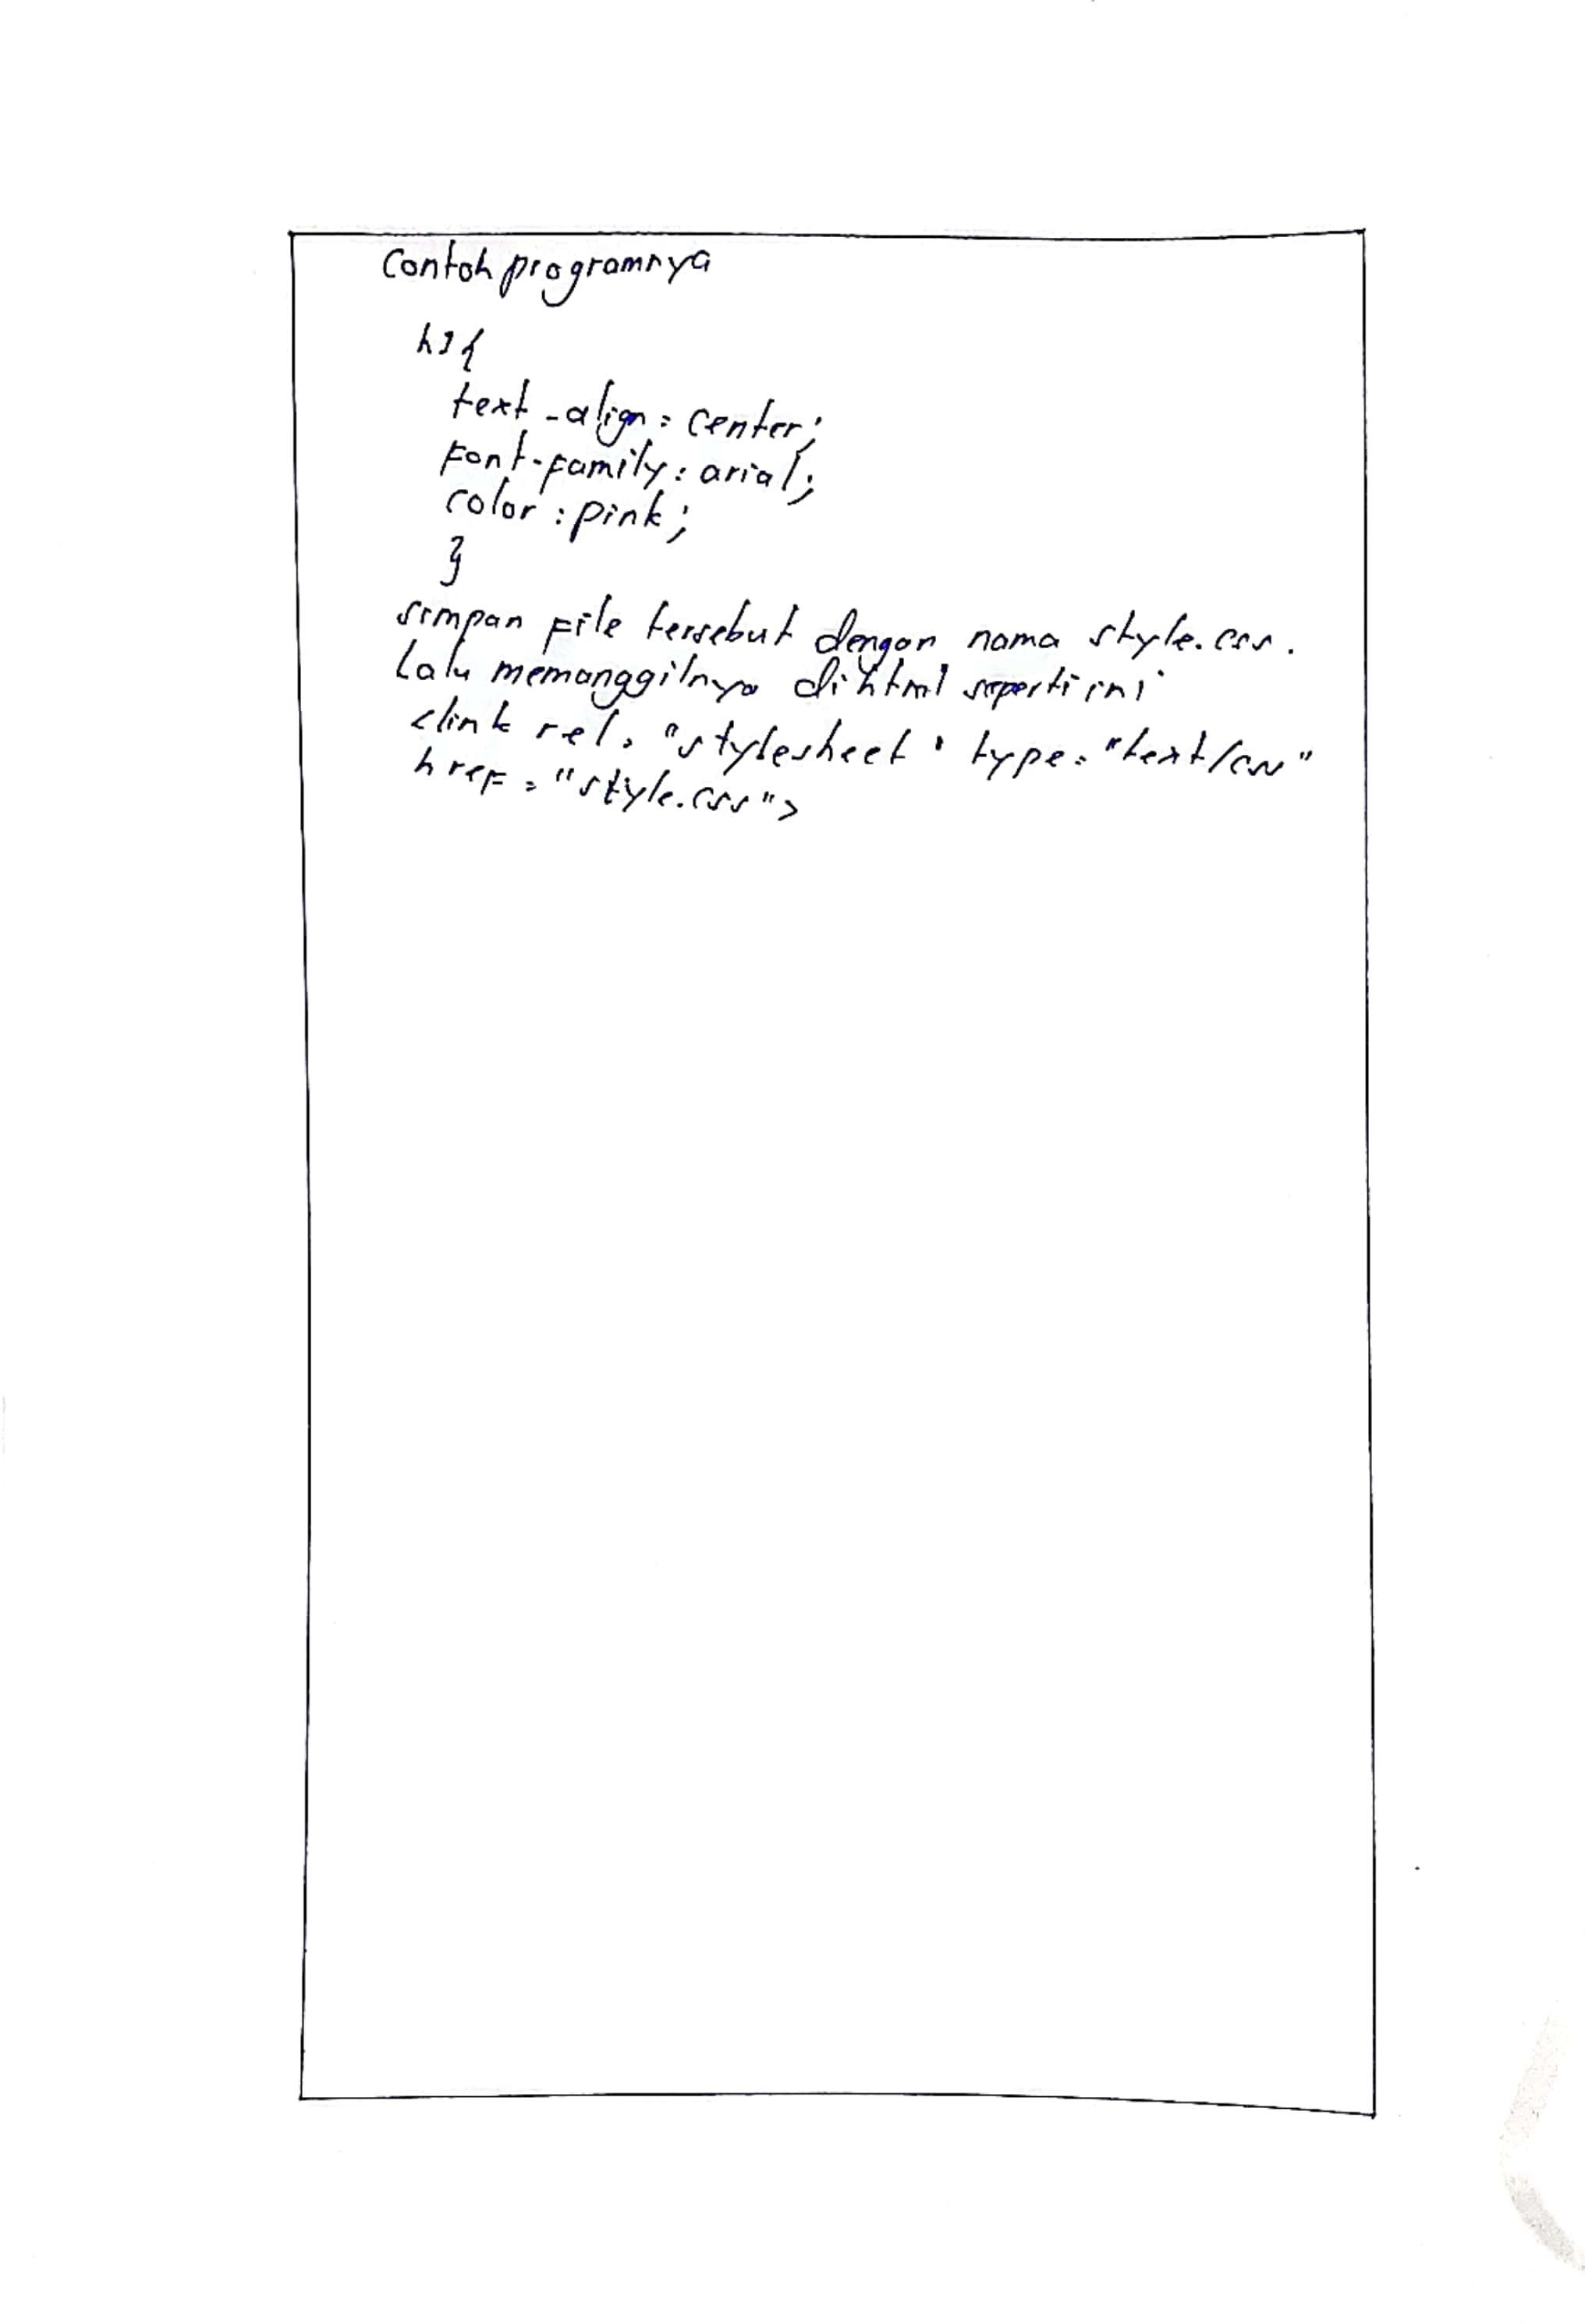 Contoh programnya
h1{
text-align: center;
font-family: arial;
color: pink;
}
simpan file tersebut dengan nama style.css.
Lalu memanggilnya di html seperti ini
<link rel="stylesheet" type="text/css"
href="style.css">